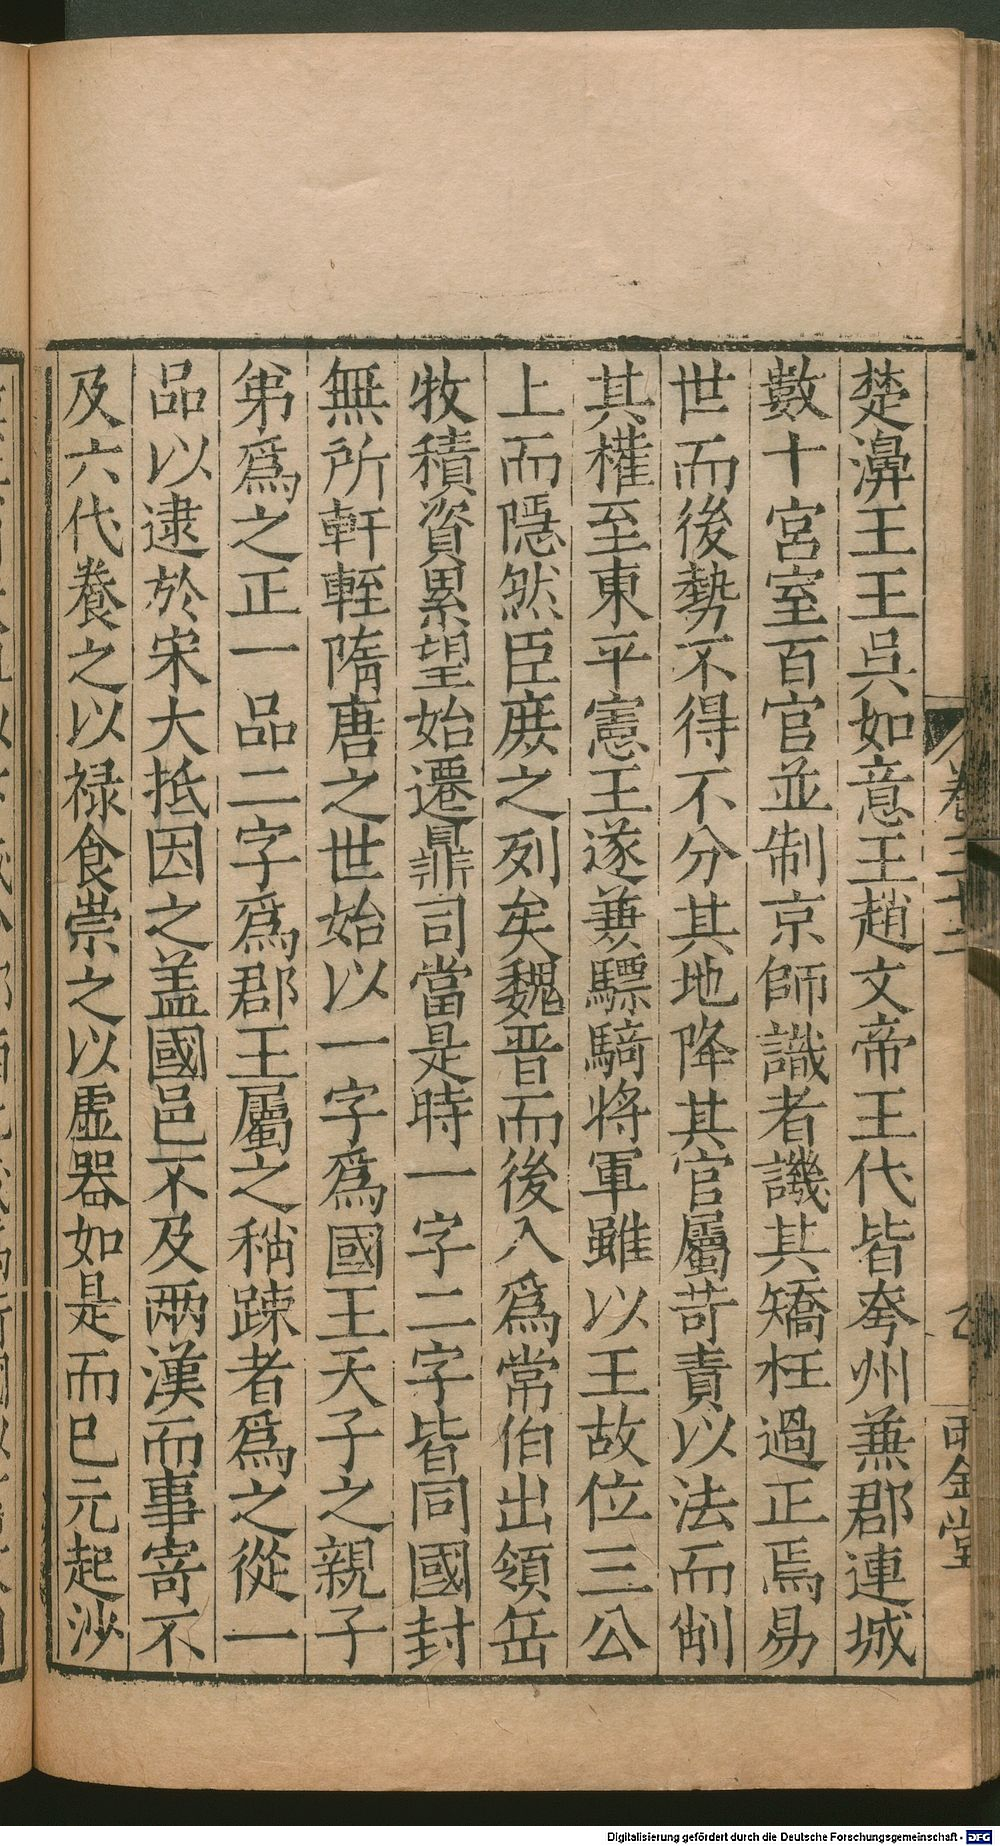 楚濞王王吳如意王趙文帝王代皆夸州兼郡連城
數十宮室百官並制京師識者譏其矯枉過正焉易
世而後勢不得不分其地降其官屬苛責以法而削
其權至東平憲王遂兼驃騎將軍雖以王故位三公
上而隱然臣庶之列矣魏晉而後入爲常伯出領岳
牧積資累望始遷鼎司當是時一字二字皆同國封
無所軒輊隋唐之世始以一字爲國王天子之親子
弟爲之正一品二字爲郡王屬之稍踈者爲之從一
品以逮於宋大抵因之盖國邑不及兩漢而事寄不
及六代養之以禄食崇之以虛器如是而巳元起沙
卷三十二
雨金堂
Digitalisierung gefördert durch die Deutsche Forschungsgemeinschaft - DFG